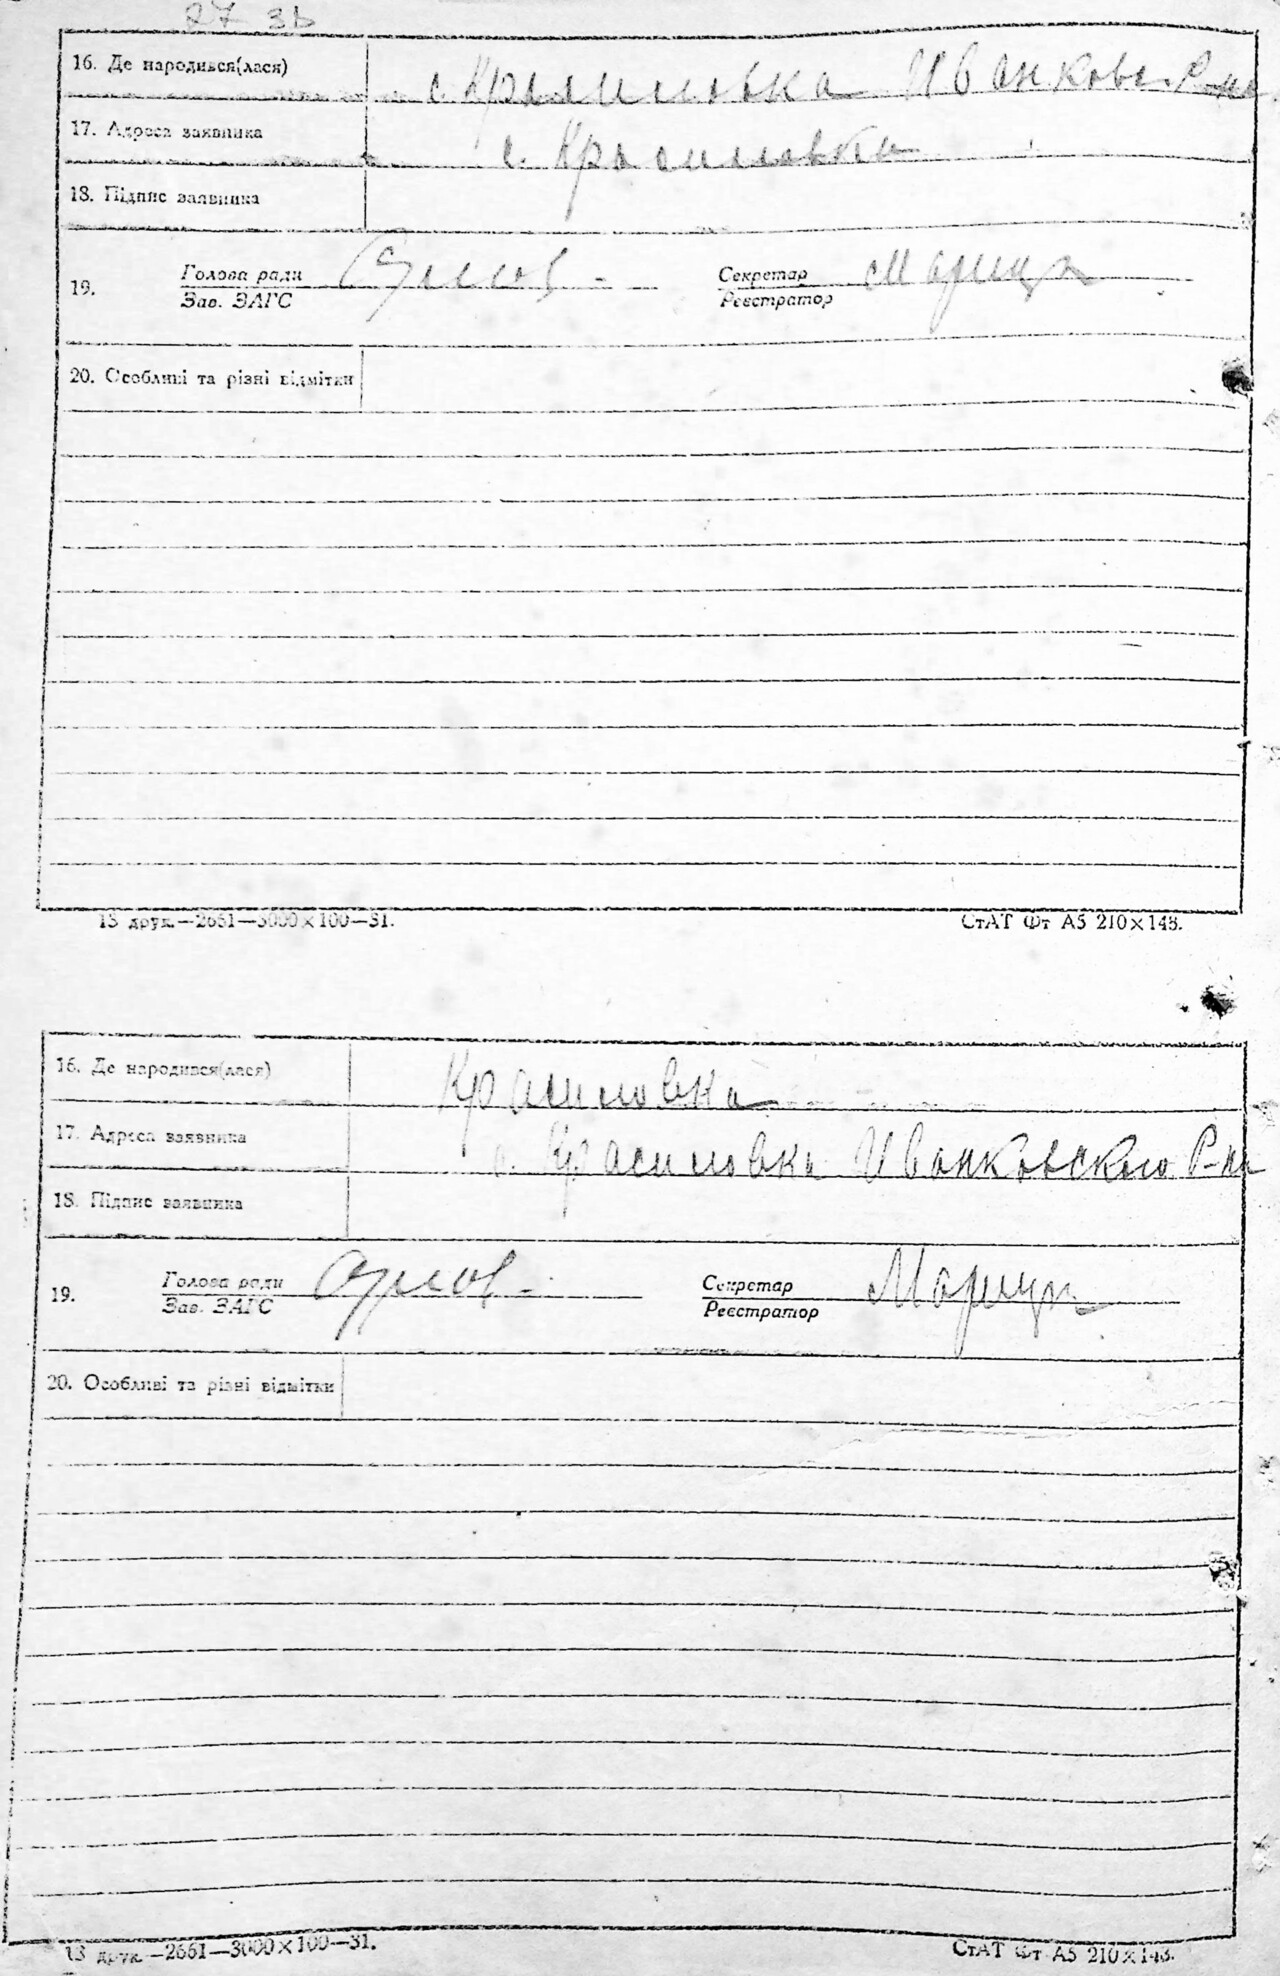 27 зв
16. Де народився(лася) с. Красиловка Иванковс. Р-на
17. Адреса заявника с. Красиловка
18. Підпис заявника
19. Голова ради Секретар
Зав. ЗАГС Реєстратор
20. Особливі та різні відмітки
13 друк.—2661—3000×100—31. СтАТ Фт А5 210×148.
16. Де народився(лася) Красиловка
17. Адреса заявника с. Красиловка Иванковского Р-на
18. Підпис заявника
19. Голова ради Секретар
Зав. ЗАГС Реєстратор
20. Особливі та різні відмітки
13 друк.—2661—3000×100—31. СтАТ Фт А5 210×148.